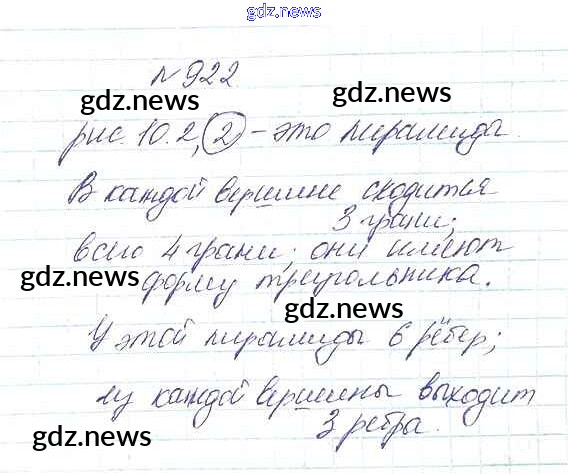 gdz.news
№922
gdz.news
gdz.news
рис. 10.2, 2 - это пирамида.
В каждой вершине сходится
3 грани;
всего 4 грани; они имеют
gdz.news
gdz.news
форму треугольника.
gdz.news
У этой пирамиды 6 рёбер;
из каждой вершины выходит
3 ребра.
gdz.news
gdz.news